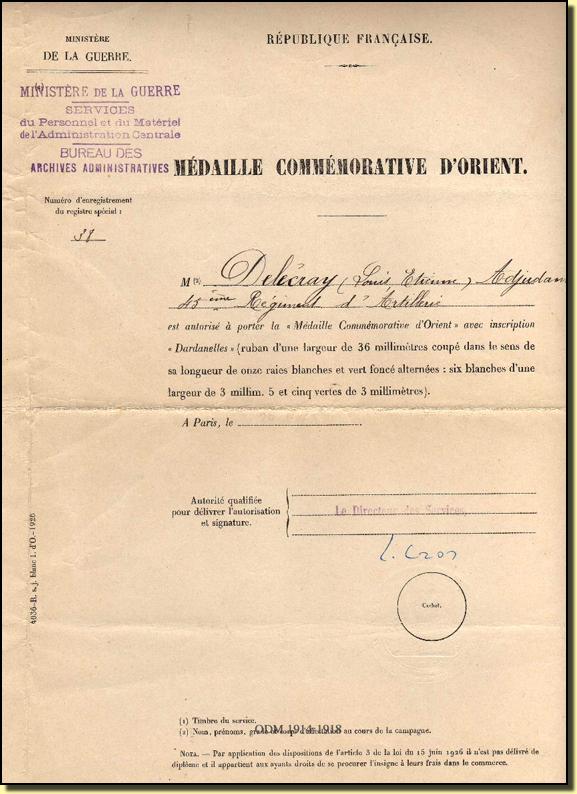 MINISTÈRE
DE LA GUERRE.
RÉPUBLIQUE FRANÇAISE.
(1)
MINISTÈRE DE LA GUERRE
SERVICES
du Personnel et du Matériel
de l'Administration Centrale
BUREAU DES
ARCHIVES ADMINISTRATIVES
MÉDAILLE COMMÉMORATIVE D'ORIENT.
Numéro d'enregistrement
du registre spécial :
38
M (2) Delécray (Louis Etienne) Adjudant
45 ème Régiment d'Artillerie
est autorisé à porter la « Médaille Commémorative d'Orient » avec inscription
« Dardanelles » (ruban d'une largeur de 36 millimètres coupé dans le sens de
sa longueur de onze raies blanches et vert foncé alternées : six blanches d'une
largeur de 3 millim. 5 et cinq vertes de 3 millimètres).
A Paris, le
Autorité qualifiée
pour délivrer l'autorisation
et signature.
Le Directeur des Services,
L. Cros
Cachet.
4636-R. s.j. blanc 1. d'O.-1926
(1) Timbre du service.
(2) Nom, prénoms, grade et corps d'affectation au cours de la campagne.
ODM 1914-1918
NOTA. — Par application des dispositions de l'article 3 de la loi du 15 juin 1926 il n'est pas délivré de
diplôme et il appartient aux ayants droits de se procurer l'insigne à leurs frais dans le commerce.